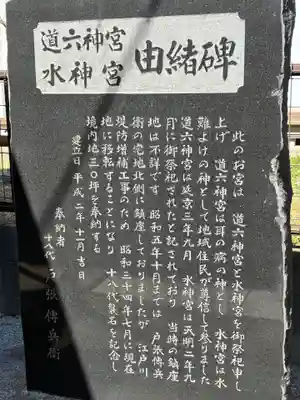 道六神宮
水神宮
由緒碑
此のお宮は 道六神宮と水神宮を御祭祀申し
上げ 道六神宮は耳の病の神とし 水神宮は水
難よけの神として地域住民が尊信して参りました
道六神宮は延享三年九月 水神宮は天明二年九
月に御祭祀されたと記されており 当時の鎮座
地は不詳です 昭和五年十月までは 戸張傳兵
衛の宅地北側に鎮座しておりましたが 江戸川
堤防増補工事のため 昭和三十四年七月に現在
地に移転することになり 十八代襲名を記念し
境内地三〇坪を奉納する
建立日 平成二年十一月吉日
奉納者
十八代 戸張傳兵衛